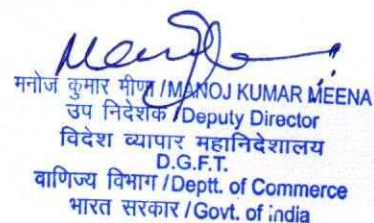 मनोज कुमार मीणा / MANOJ KUMAR MEENA
उप निदेशक / Deputy Director
विदेश व्यापार महानिदेशालय
D.G.F.T.
वाणिज्य विभाग / Deptt. of Commerce
भारत सरकार / Govt. of india